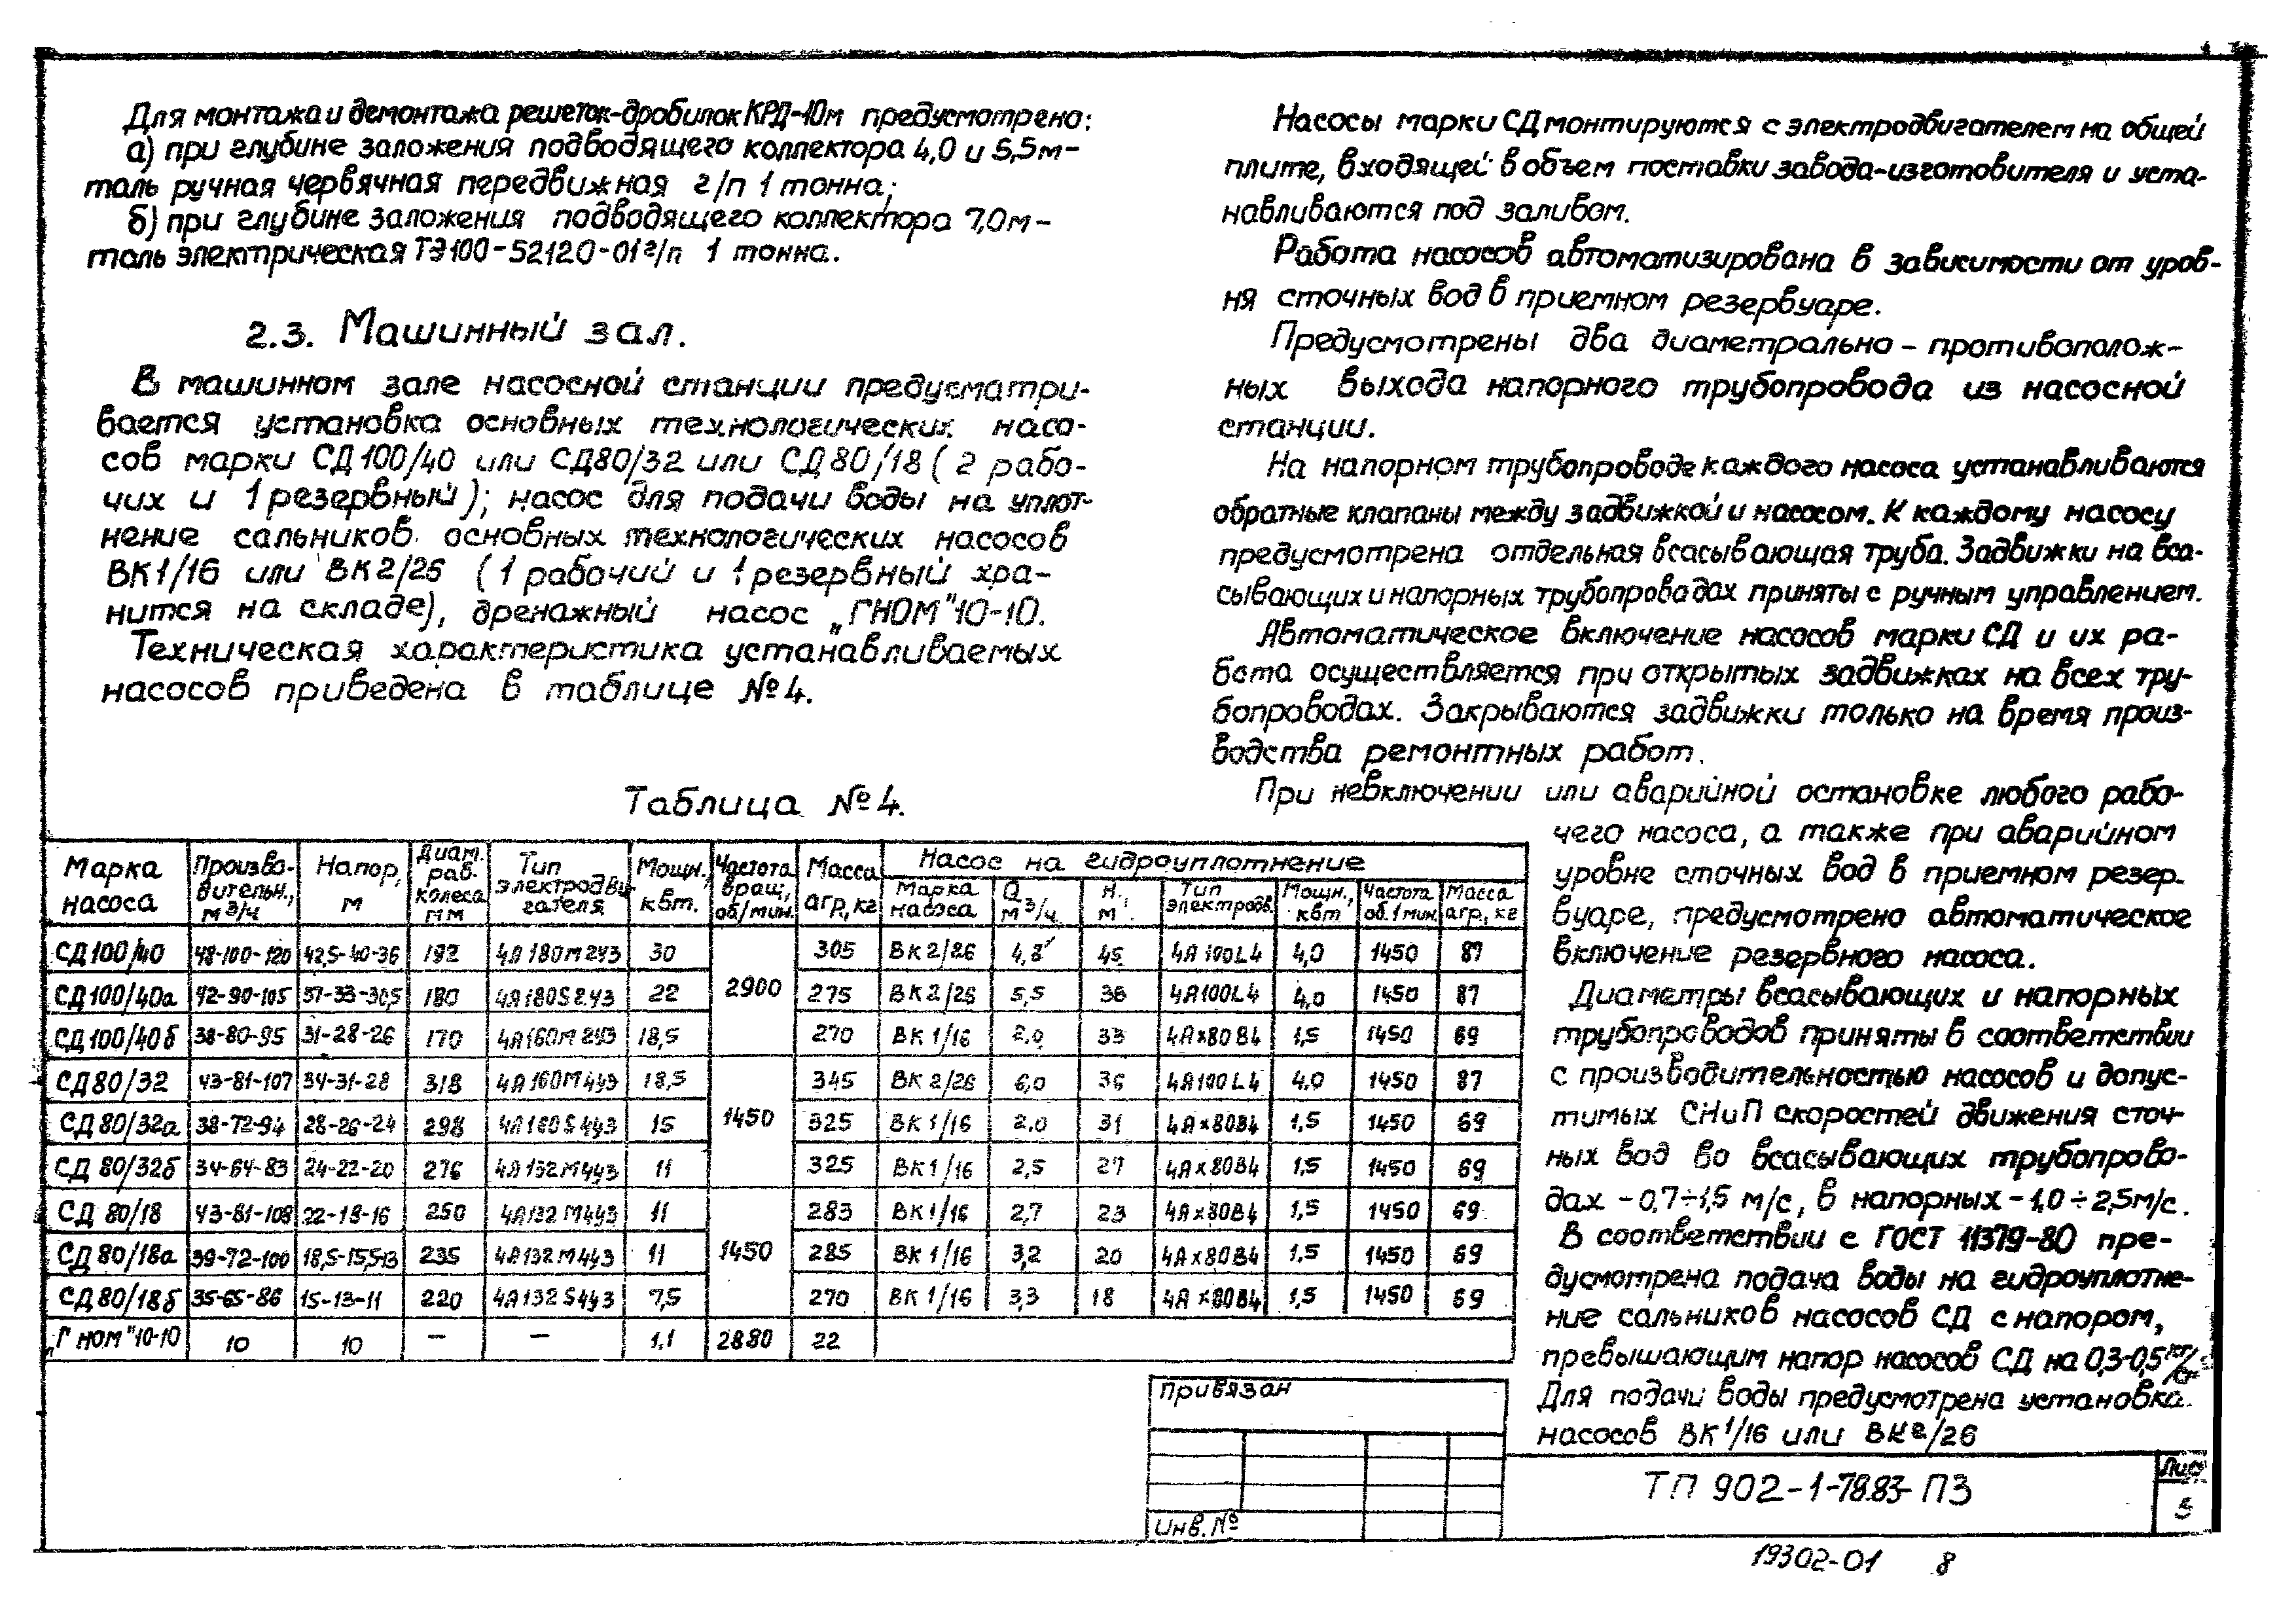 Для монтажа и демонтажа решеток-дробилок КРД-10м предусмотрено:
а) при глубине заложения подводящего коллектора 4,0 и 5,5м-
таль ручная червячная передвижная г/п 1 тонна;
б) при глубине заложения подводящего коллектора 7,0м-
таль электрическая ТЭ100-52120-01 г/п 1 тонна.
2.3. Машинный зал.
В машинном зале насосной станции предусматри-
вается установка основных технологических насо-
сов марки СД100/40 или СД80/32 или СД80/18 (2 рабо-
чих и 1 резервный); насос для подачи воды на уплот-
нение сальников основных технологических насосов
ВК1/16 или ВК2/26 (1 рабочий и 1 резервный хра-
нится на складе), дренажный насос „ГНОМ" 10-10.
Техническая характеристика устанавливаемых
насосов приведена в таблице №4.
Таблица №4.
Марка насоса | Произво-дительн., м3/ч | Напор, м | Диам. раб. колеса мм | Тип электродви-гателя | Мощн., квт. | Частота вращ., об/мин. | Масса агр, кг | Насос на гидроуплотнение
Марка насоса | Q м3/ч | Н, м | Тип электродв. | Мощн., квт | Частота об. 1 мин. | Масса агр., кг
СД100/40 | 48-100-120 | 42,5-40-36 | 192 | 4А180М2У3 | 30 | 2900 | 305 | ВК2/26 | 4,8 | 45 | 4А100L4 | 4,0 | 1450 | 87
СД100/40а | 42-90-105 | 37-33-30,5 | 180 | 4А180S2У3 | 22 | 275 | ВК2/26 | 5,5 | 38 | 4А100L4 | 4,0 | 1450 | 87
СД100/40б | 38-80-95 | 31-28-26 | 170 | 4А160М2У3 | 18,5 | 270 | ВК1/16 | 2,0 | 33 | 4Ах80В4 | 1,5 | 1450 | 69
СД80/32 | 43-81-107 | 34-31-28 | 318 | 4А160М4У3 | 18,5 | 1450 | 345 | ВК2/26 | 6,0 | 36 | 4А100L4 | 4,0 | 1450 | 87
СД80/32а | 38-72-94 | 28-26-24 | 298 | 4А160S4У3 | 15 | 325 | ВК1/16 | 2,0 | 31 | 4Ах80В4 | 1,5 | 1450 | 69
СД80/32б | 34-64-83 | 24-22-20 | 276 | 4А132М4У3 | 11 | 325 | ВК1/16 | 2,5 | 27 | 4Ах80В4 | 1,5 | 1450 | 69
СД80/18 | 43-81-108 | 22-18-16 | 250 | 4А132М4У3 | 11 | 1450 | 283 | ВК1/16 | 2,7 | 23 | 4Ах80В4 | 1,5 | 1450 | 69
СД80/18а | 39-72-100 | 18,5-15,5-13 | 235 | 4А132М4У3 | 11 | 285 | ВК1/16 | 3,2 | 20 | 4Ах80В4 | 1,5 | 1450 | 69
СД80/18б | 35-65-86 | 15-13-11 | 220 | 4А132S4У3 | 7,5 | 270 | ВК1/16 | 3,3 | 18 | 4Ах80В4 | 1,5 | 1450 | 69
„Гном" 10-10 | 10 | 10 | — | — | 1,1 | 2880 | 22
Насосы марки СД монтируются с электродвигателем на общей
плите, входящей в объем поставки завода-изготовителя и уста-
навливаются под заливом.
Работа насосов автоматизирована в зависимости от уров-
ня сточных вод в приемном резервуаре.
Предусмотрены два диаметрально-противополож-
ных выхода напорного трубопровода из насосной
станции.
На напорном трубопроводе каждого насоса устанавливаются
обратные клапаны между задвижкой и насосом. К каждому насосу
предусмотрена отдельная всасывающая труба. Задвижки на вса-
сывающих и напорных трубопроводах приняты с ручным управлением.
Автоматическое включение насосов марки СД и их ра-
бота осуществляется при открытых задвижках на всех тру-
бопроводах. Закрываются задвижки только на время произ-
водства ремонтных работ.
При невключении или аварийной остановке любого рабо-
чего насоса, а также при аварийном
уровне сточных вод в приемном резер-
вуаре, предусмотрено автоматическое
включение резервного насоса.
Диаметры всасывающих и напорных
трубопроводов приняты в соответствии
с производительностью насосов и допус-
тимых СНиП скоростей движения сточ-
ных вод во всасывающих трубопрово-
дах - 0,7÷1,5 м/с, в напорных - 1,0÷2,5м/с.
В соответствии с ГОСТ 11379-80 пре-
дусмотрена подача воды на гидроуплотне-
ние сальников насосов СД с напором,
превышающим напор насосов СД на 0,3-0,5
Для подачи воды предусмотрена установка
насосов ВК1/16 или ВК2/26
Привязан
Инв. №
ТП 902-1-78.83-ПЗ
Лист
5
19302-01 8